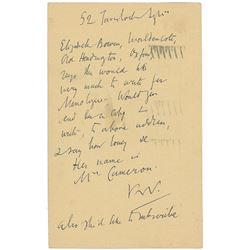 52 Tavistock Sqre
Elizabeth Bowen, Waldencote,
Old Headington, Oxford,
says she would like
very much to write for
Would you
and
write, to above address,
& say how long
Her name is
Mrs Cameron.
V.W.
also she'd like to subscribe